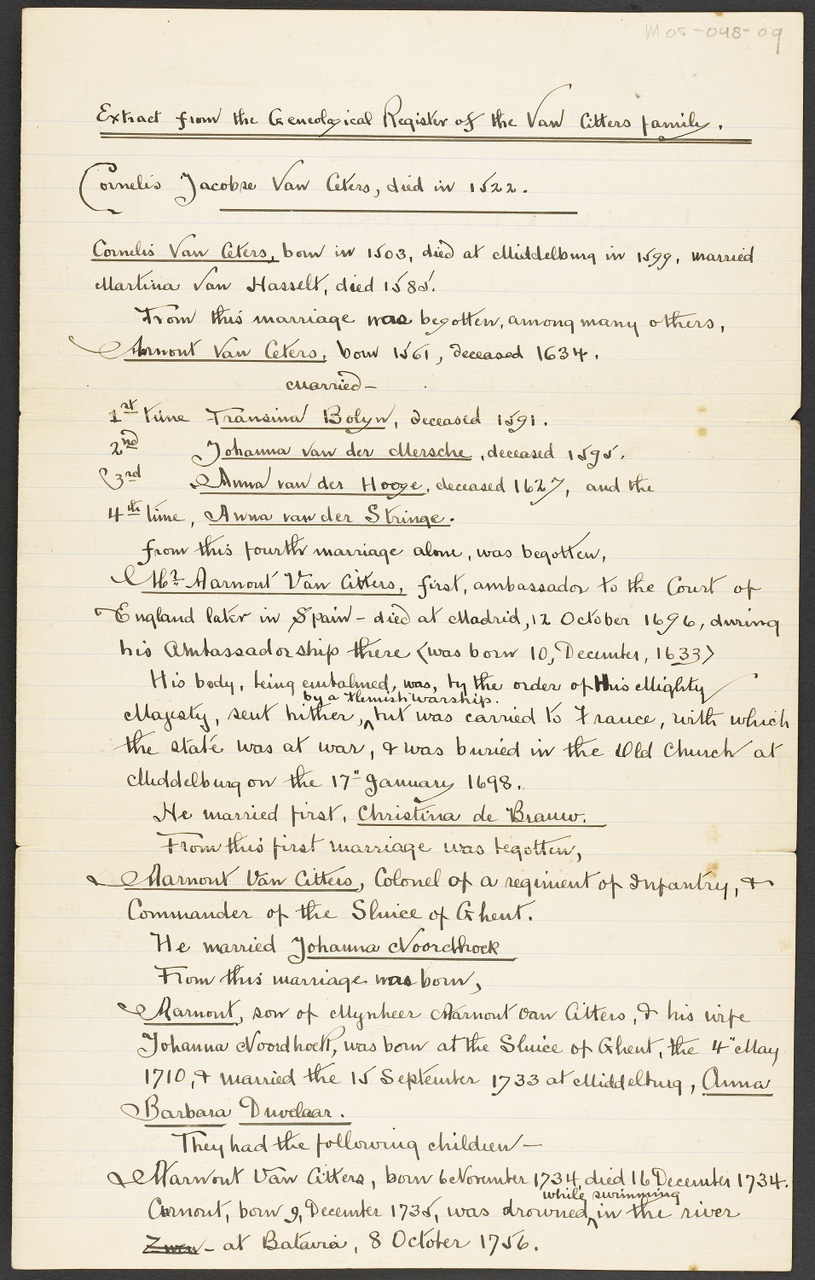 M05-048-09
Extract from the Geneological Register of the Van Citters family.
Cornelis Jacobse Van Ceters, died in 1522.
Cornelis Van Ceters, born in 1503, died at Middelburg in 1599, married
Martina Van Hasselt, died 1585.
From this marriage was begotten, among many others,
Arnout Van Ceters, born 1561, deceased 1634.
married—
1st time Fransina Bolyn, deceased 1591.
2nd Johanna van der Mersche, deceased 1595.
3rd Anna van der Hooge, deceased 1627, and the
4th time, Anna van der Stringe.
from this fourth marriage alone, was begotten,
Mr. Aarnout Van Citters, first, ambassador to the Court of
England later in Spain – died at Madrid, 12 October 1696, during
his Ambassadorship there (was born 10, December, 1633)
His body, being embalmed, was, by the order of His Mighty
by a Flemish Warship.
Majesty, sent hither, ^ but was carried to France, with which
the state was at war, & was buried in the Old Church at
Middelburg on the 17" January 1698.
He married first, Christina de Brauw.
From this first marriage was begotten,
Aarnout Van Citters, Colonel of a regiment of Infantry, &
Commander of the Sluice of Ghent.
He married Johanna Noordhoek
From this marriage was born,
Aarnout, son of Mynheer Aarnout van Citters, & his wife
Johanna Noordhoek, was born at the Sluice of Ghent, the 4" May
1710, & married the 15 September 1733 at Middelburg, Anna
Barbara Duvelaar.
They had the following children—
Aarnout Van Citters, born 6 November 1734, died 16 December 1734.
while swimming
Cornout, born 9, December 1735, was drowned ^ in the river
at Batavia, 8 October 1756.